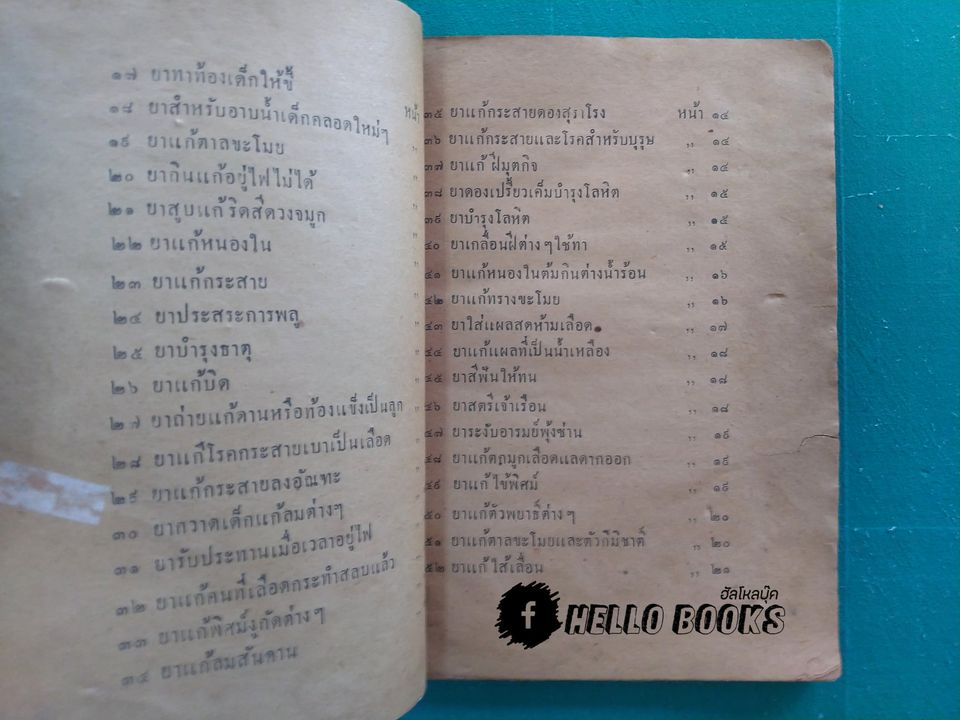 ๑๗ ยาทาท้องเด็กให้ขี้
๑๘ ยาสำหรับอาบน้ำเด็กคลอดใหม่ๆ หน้า
๑๙ ยาแก้ตาลขะโมย ,,
๒๐ ยากินแก้อยู่ไฟไม่ได้ ,,
๒๑ ยาสูบแก้ริดสีดวงจมูก ,,
๒๒ ยาแก้หนองใน ,,
๒๓ ยาแก้กระสาย ,,
๒๔ ยาประสระการพลู ,,
๒๕ ยาบำรุงธาตุ ,,
๒๖ ยาแก้บิด ,,
๒๗ ยาถ่ายแก้ดานหรือท้องแข็งเป็นลูก ,,
๒๘ ยาแก้โรคกระสายเบาเป็นเลือด ,,
๒๙ ยาแก้กระสายลงอัณฑะ ,,
๓๐ ยากวาดเด็กแก้ลมต่างๆ ,,
๓๑ ยารับประทานเมื่อเวลาอยู่ไฟ
๓๒ ยาแก้คนที่เลือดกระทำสลบแล้ว
๓๓ ยาแก้พิศม์งูกัดต่างๆ
๓๔ ยาแก้ลมสันดาน
๓๕ ยาแก้กระสายดองสุราโรง หน้า ๑๔
๓๖ ยาแก้กระสายและโรคสำหรับบุรุษ ,, ๑๔
๓๗ ยาแก้ ฝีมุตกิจ ,, ๑๔
๓๘ ยาดองเปรี้ยวเค็มบำรุงโลหิต ,, ๑๕
๓๙ ยาบำรุงโลหิต ,, ๑๕
๔๐ ยาเกลื่อนฝีต่าง ๆใช้ทา ,, ๑๕
๔๑ ยาแก้หนองในต้มกินต่างน้ำร้อน ,, ๑๖
๔๒ ยาแก้ทรางขะโมย ,, ๑๖
๔๓ ยาใส่แผลสดห้ามเลือด ,, ๑๗
๔๔ ยาแก้แผลที่เป็นน้ำเหลือง ,, ๑๘
๔๕ ยาสีฟันให้ทน ,, ๑๘
๔๖ ยาสตรีเจ้าเรือน ,, ๑๘
๔๗ ยาระงับอารมย์ฟุ้งซ่าน ,, ๑๙
๔๘ ยาแก้ตกมูกเลือดแลดากออก ,, ๑๙
๔๙ ยาแก้ ไข้พิศม์ ,, ๑๙
๕๐ ยาแก้ตัวพยาธิ์ต่าง ๆ ,, ๒๐
๕๑ ยาแก้ตาลขะโมยและตัวกิมิชาติ์ ,, ๒๐
๕๒ ยาแก้ ไส้เลื่อน ,, ๒๑
ฮัลโหลบุ๊ค
f HELLO BOOKS